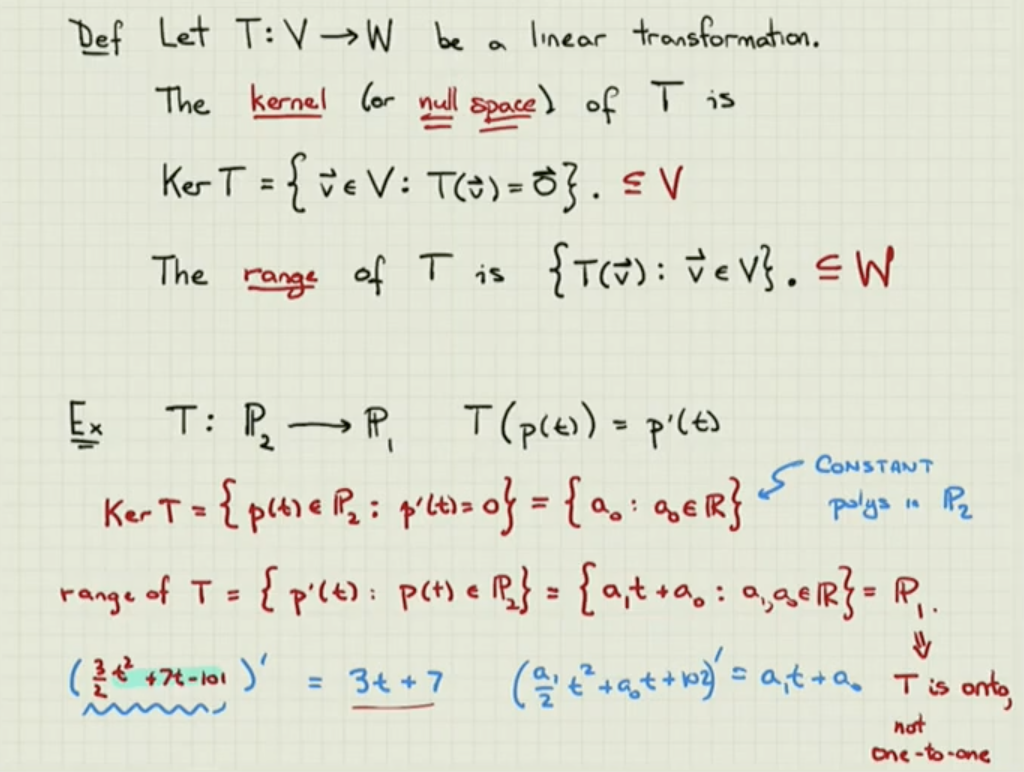 Def Let T: V → W be a linear transformation.
The kernel (or null space) of T is
Ker T = { v⃗ ∈ V : T(v⃗) = 0⃗ }. ⊆ V
The range of T is { T(v⃗) : v⃗ ∈ V }. ⊆ W
Ex T: ℙ₂ → ℙ₁ T(p(t)) = p'(t)
CONSTANT
polys in ℙ₂
Ker T = { p(t) ∈ ℙ₂ : p'(t) = 0 } = { a₀ : a₀ ∈ ℝ }
range of T = { p'(t) : p(t) ∈ ℙ₂ } = { a₁t + a₀ : a₁, a₀ ∈ ℝ } = ℙ₁.
⇓
(3/2 t² + 7t - 101)' = 3t + 7 (a₁/2 t² + a₀t + 102)' = a₁t + a₀ T is onto,
not
one-to-one